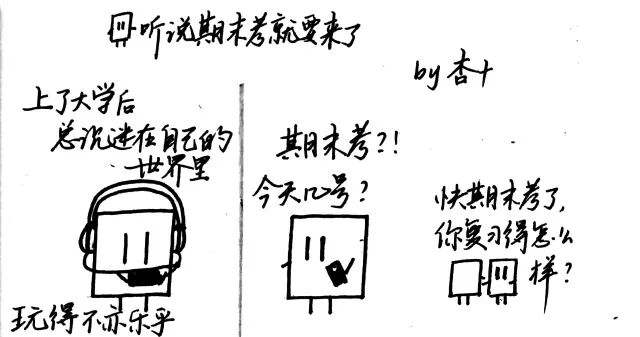 听说期末考就要来了
by 杏十
上了大学后
总沉迷在自己的
世界里
玩得不亦乐乎
期末考?!
今天几号?
快期末考了,
你复习得怎么
样?